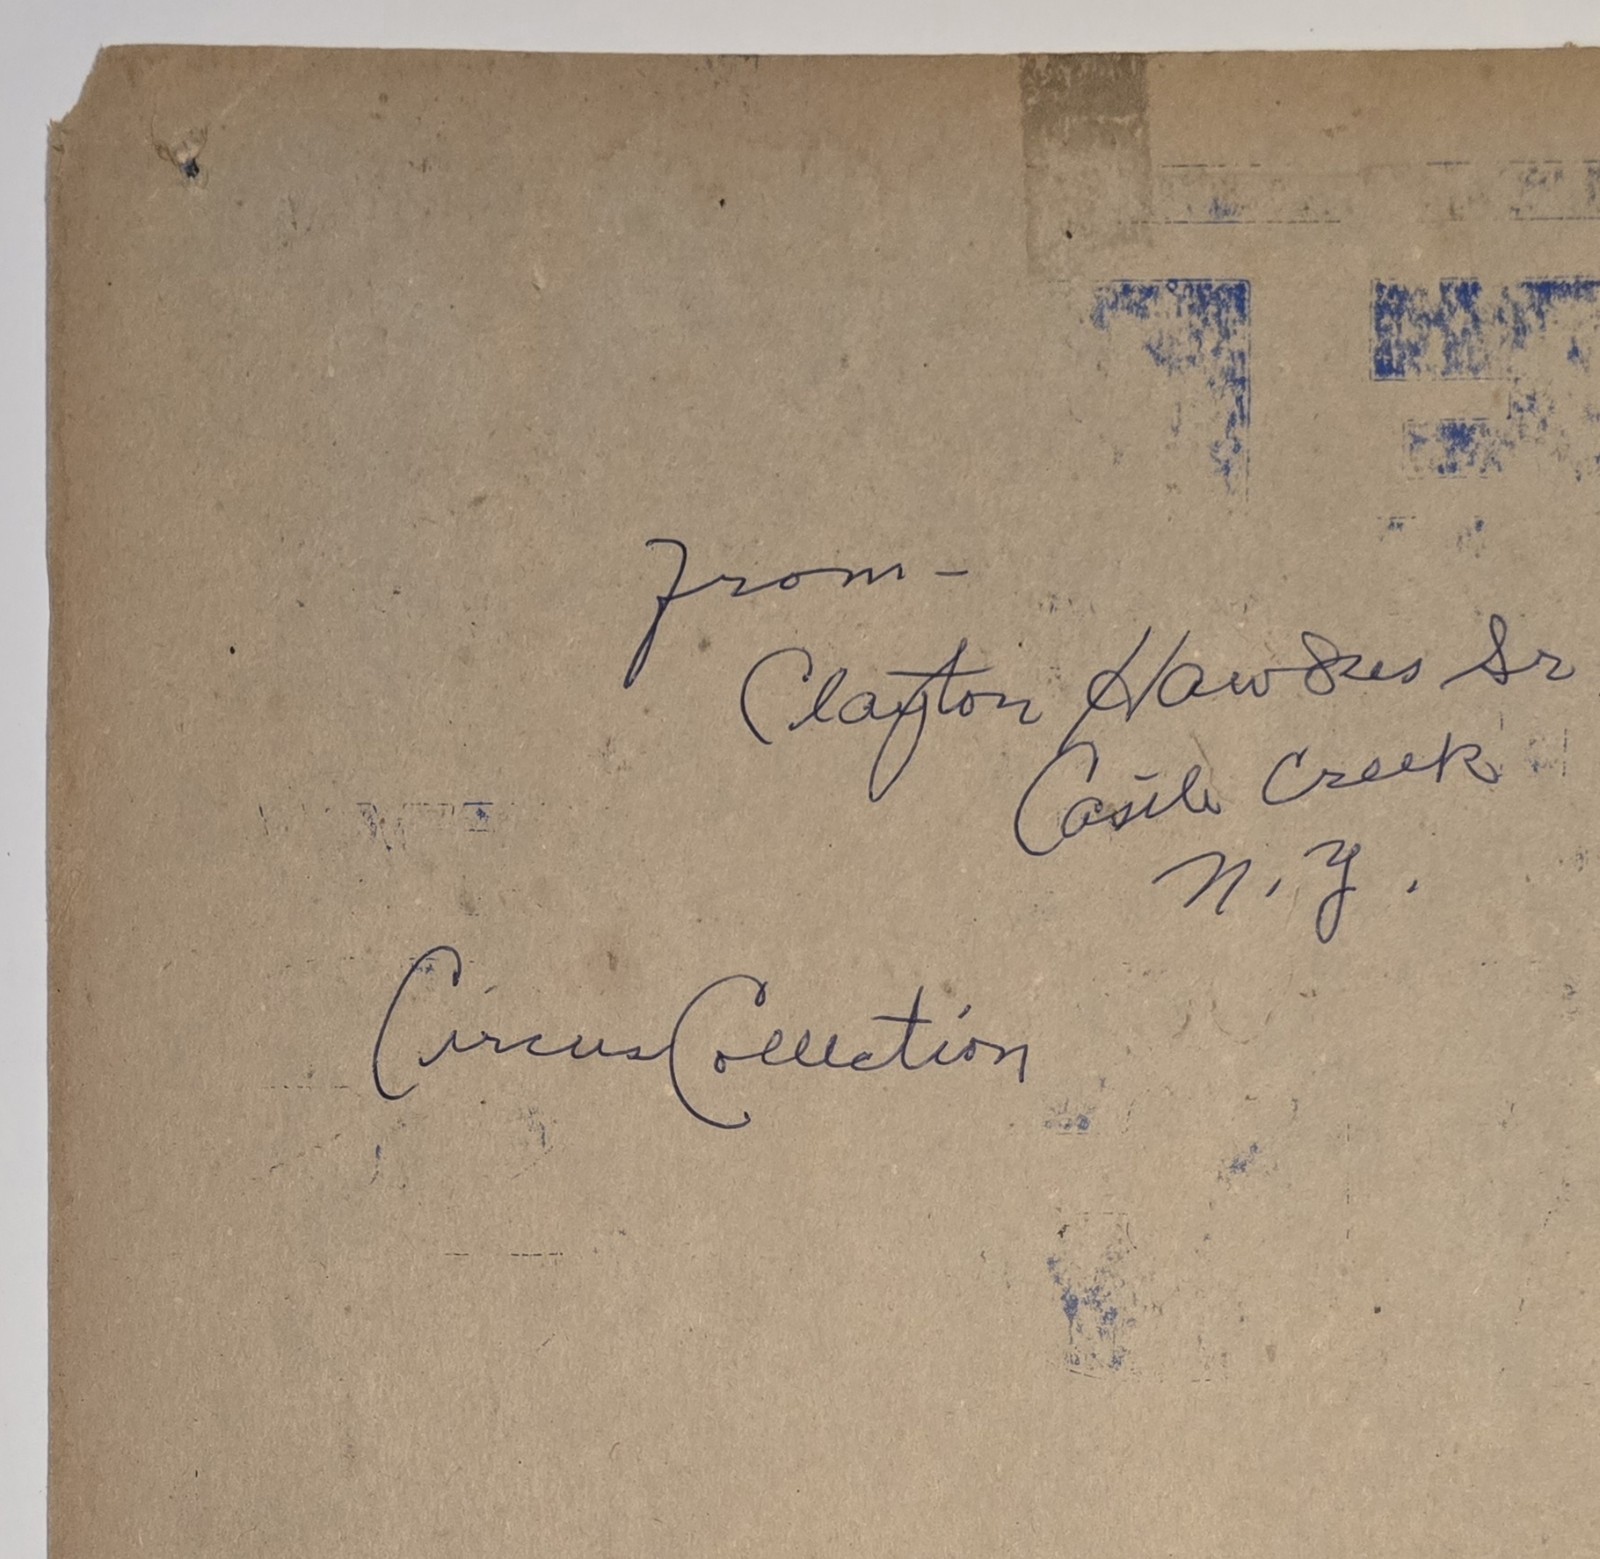 From -
Clayton Hawkes Sr
Castle Creek
N. Y.
Circus Collection